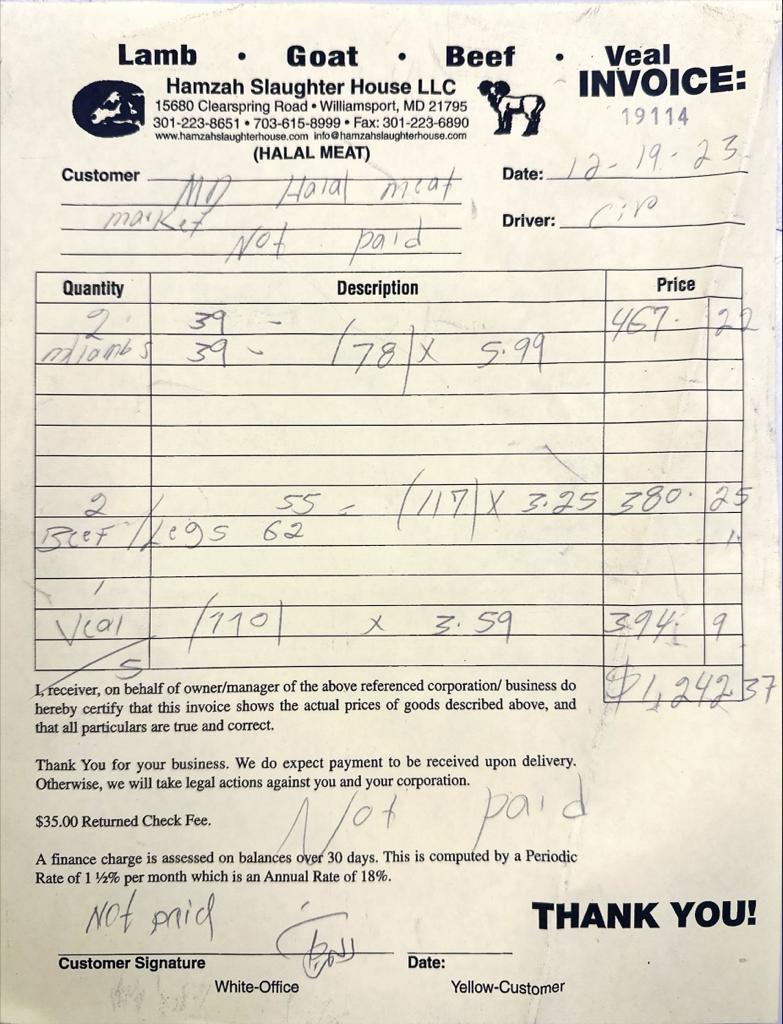 Lamb • Goat • Beef • Veal
Hamzah Slaughter House LLC
15680 Clearspring Road • Williamsport, MD 21795
301-223-8651 • 703-615-8999 • Fax: 301-223-6890
www.hamzahslaughterhouse.com info@hamzahslaughterhouse.com
(HALAL MEAT)
INVOICE:
19114
Customer MD Halal meat
market
Not paid
Date: 12-19-23
Driver:
Quantity Description Price
2 39 - 467. 22
lambs 39 - (78) X 5.99
2 55 - (117) X 3.25 380. 25
Beef / Legs 62
1
Veal (110) x 3.59 394. 9
5
$1,242.37
I, receiver, on behalf of owner/manager of the above referenced corporation/ business do
hereby certify that this invoice shows the actual prices of goods described above, and
that all particulars are true and correct.
Thank You for your business. We do expect payment to be received upon delivery.
Otherwise, we will take legal actions against you and your corporation.
Not paid
$35.00 Returned Check Fee.
A finance charge is assessed on balances over 30 days. This is computed by a Periodic
Rate of 1 ½% per month which is an Annual Rate of 18%.
Not paid
THANK YOU!
Customer Signature Date:
White-Office Yellow-Customer